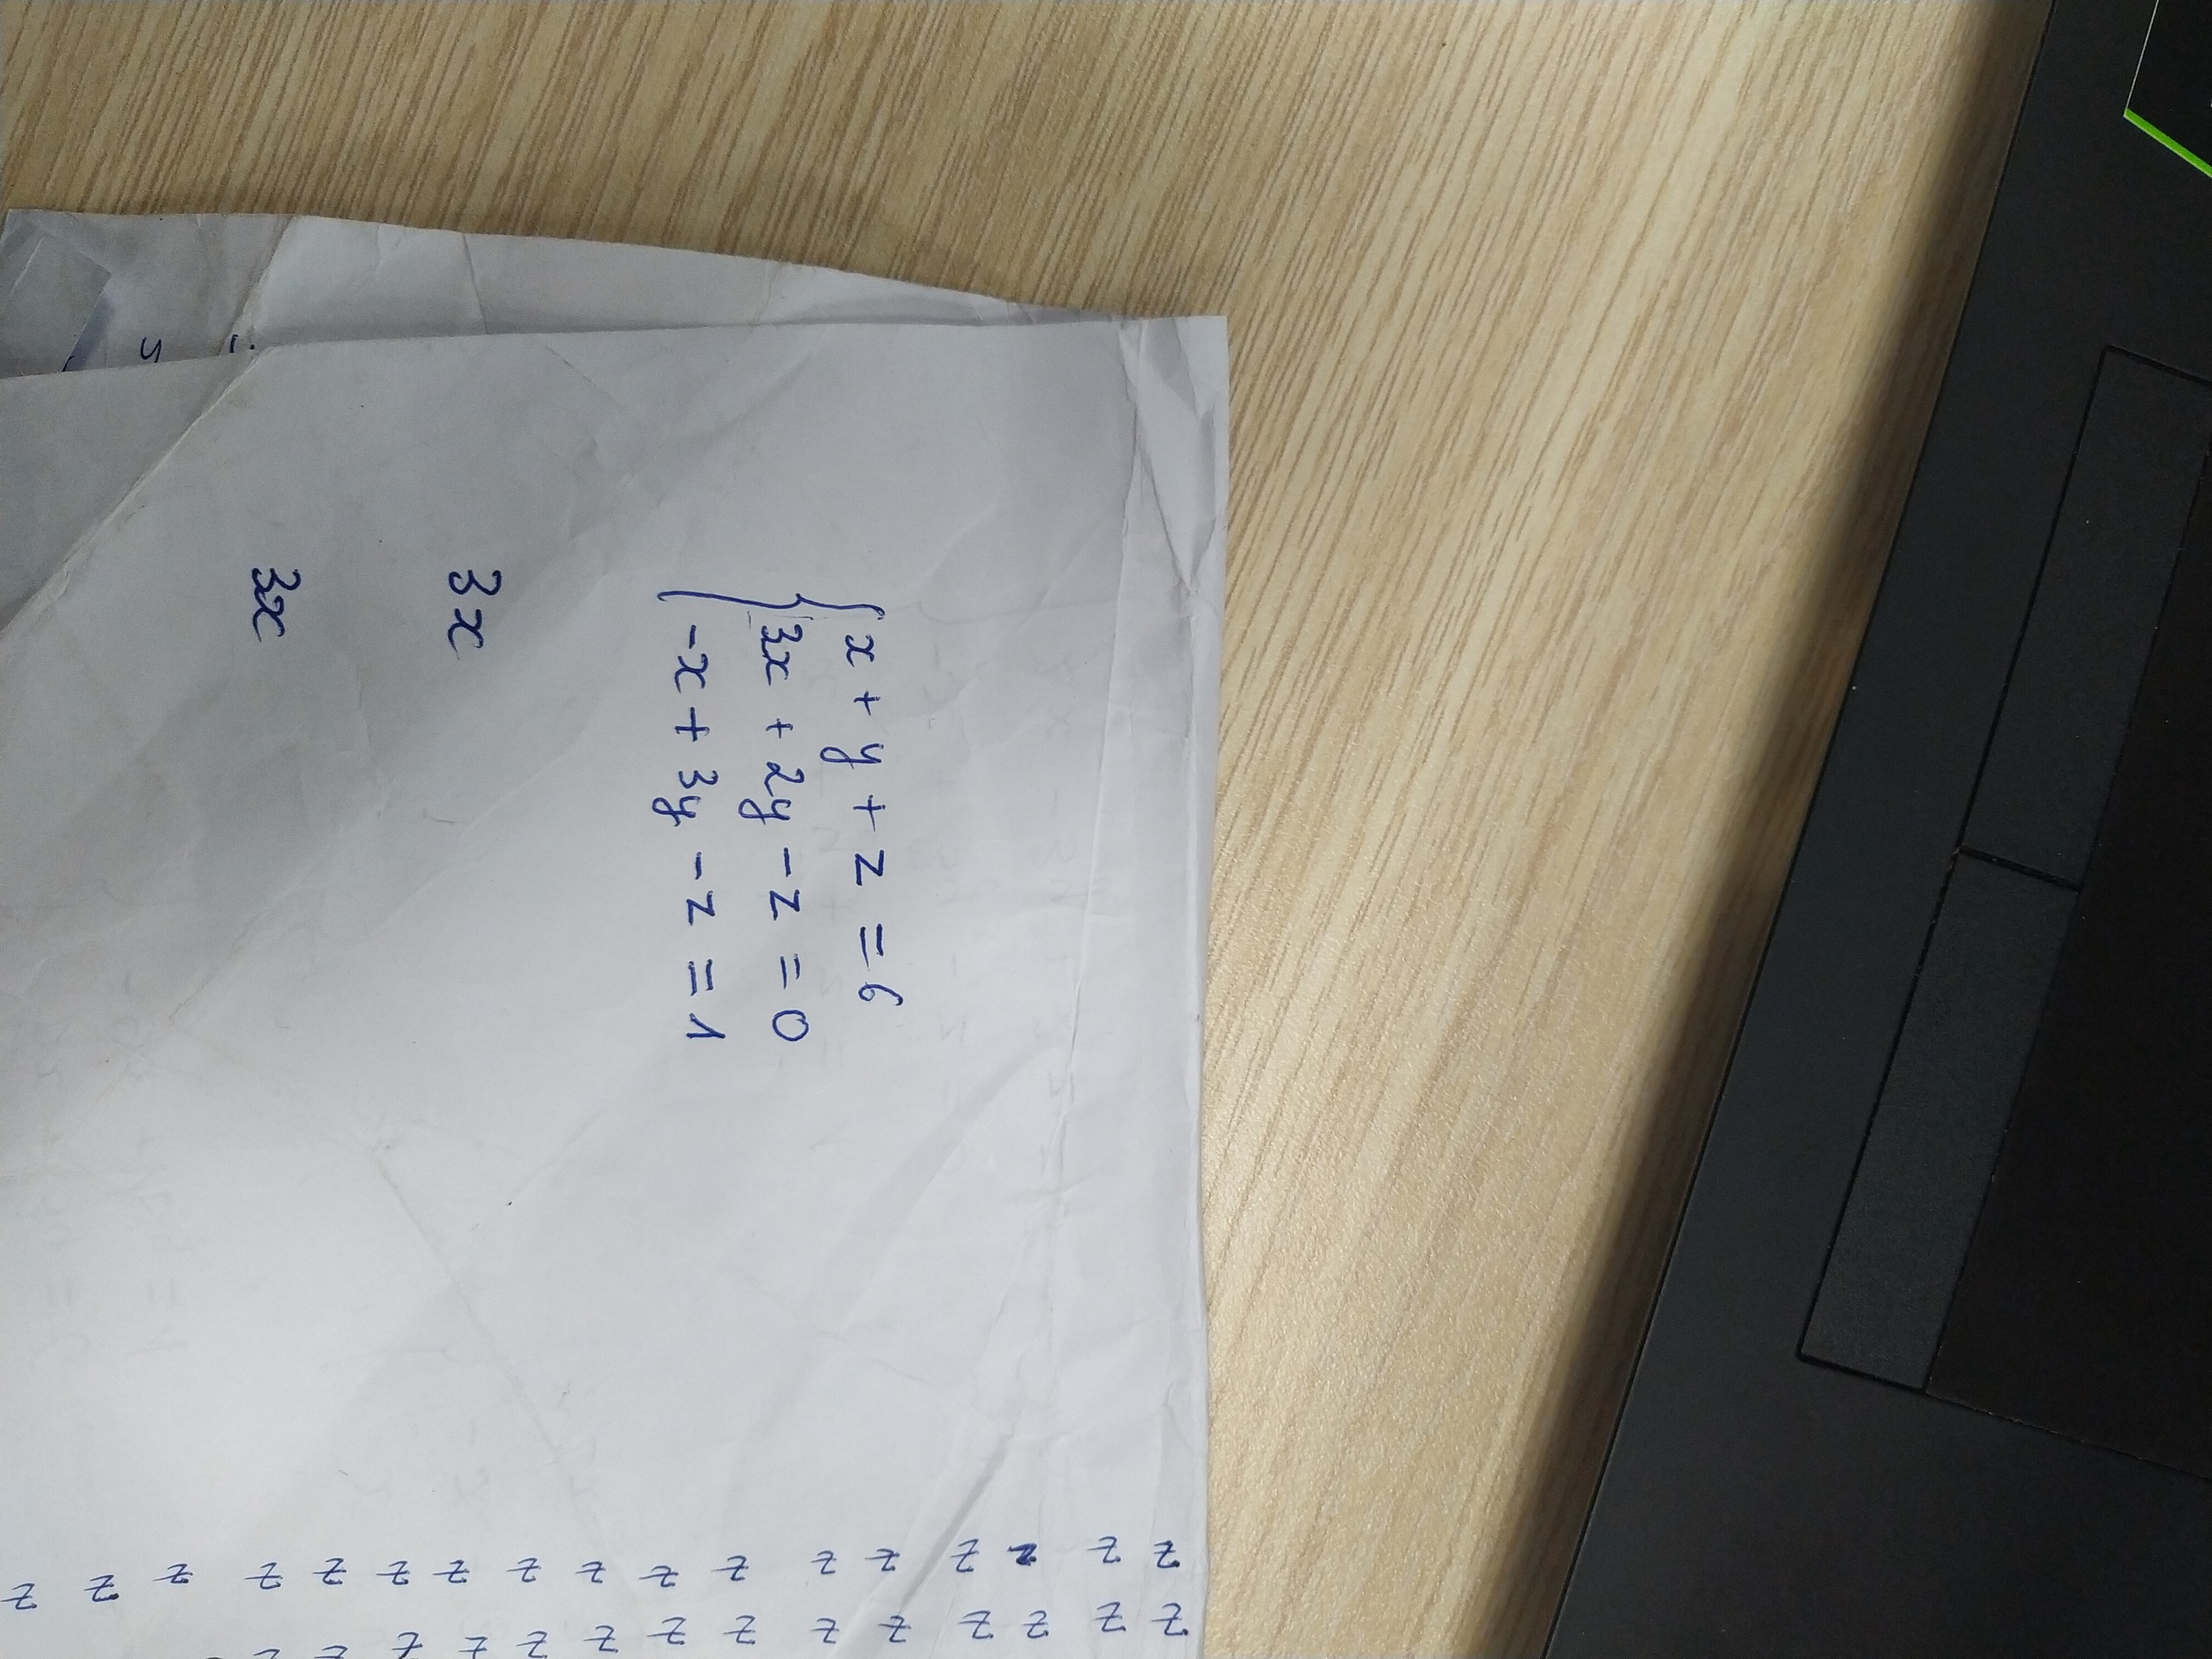 x + y + z = 6
3x + 2y - z = 0
-x + 3y - z = 1
3x
3x
z z z z z z z z z z z z z z z z z z
z z z z z z z z z z z z z z